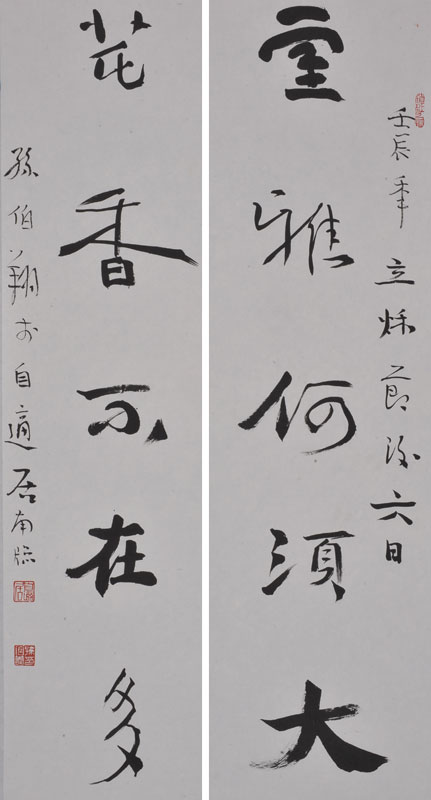 壬辰年立秋節後六日
室雅何須大
花香不在多
孫伯翔於自適居南牕